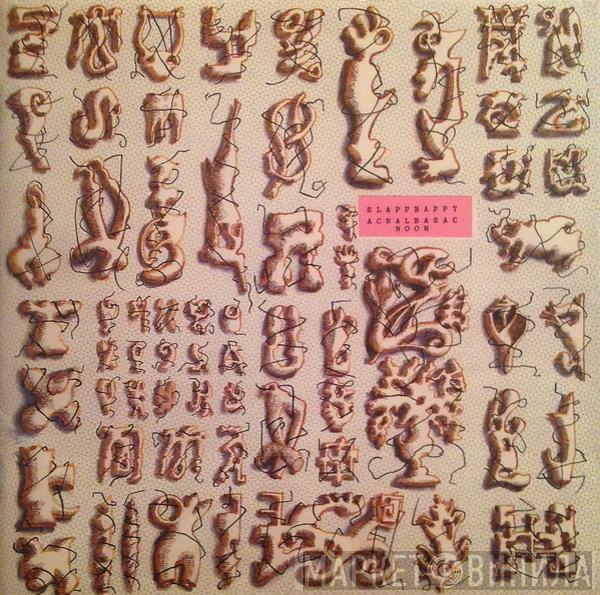 SLAPPHAPPY
ACNALBASAC
NOOM
МАРКЕТ ВИНИЛА